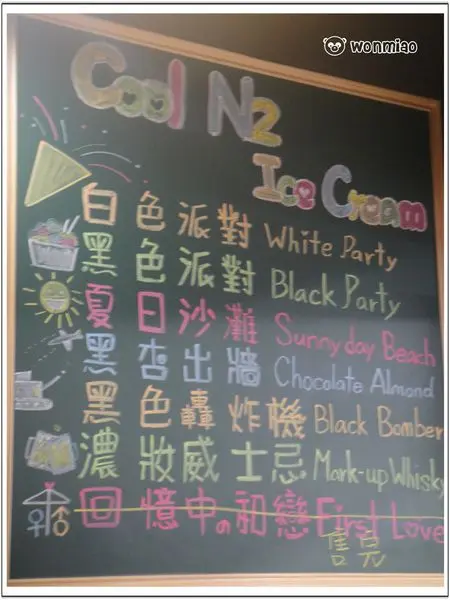 wonmiao
Cool N2
Ice Cream
白色派對 White Party
黑色派對 Black Party
夏日沙灘 Sunny day Beach
黑杏出牆 Chocolate Almond
黑色轟炸機 Black Bomber
濃妝威士忌 Mark-up Whisky
回憶中の初戀 First Love
售完